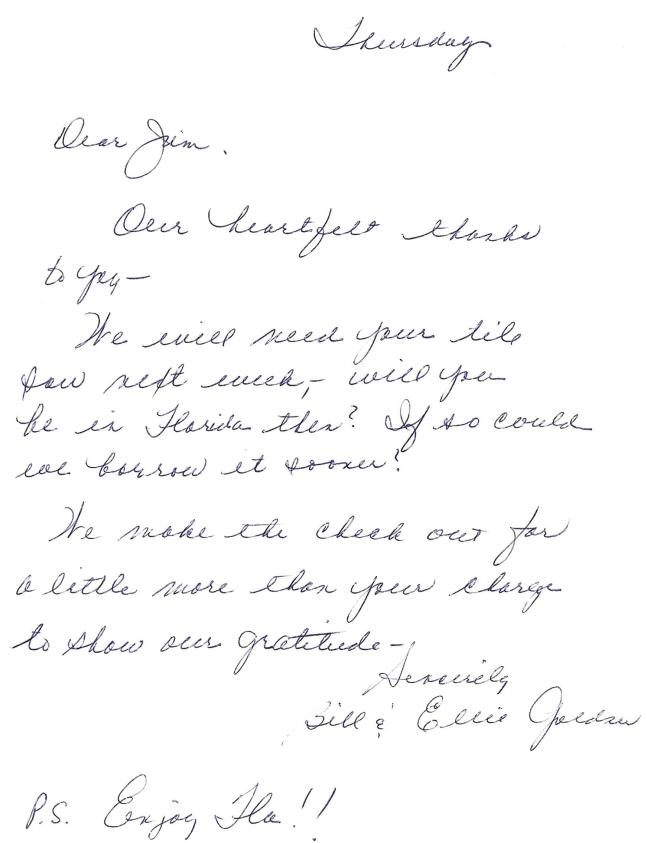 Thursday
Dear Jim.
Our heartfelt thanks
to you—
We will need your tile
saw next week,- will you
be in Florida then? If so could
we borrow it sooner?
We make the check out for
a little more than your charge
to show our gratitude-
Sincerely
Bill & Ellie
P.S. Enjoy Fla!!